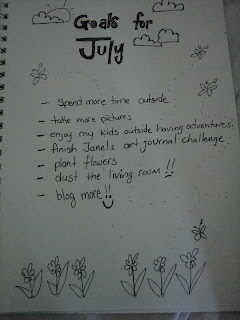 Goals for
July
- Spend more time outside
- take more pictures
- enjoy my kids outside having adventures.
- finish Janels art journal challenge.
- plant flowers
- dust the living room!!
- blog more!!